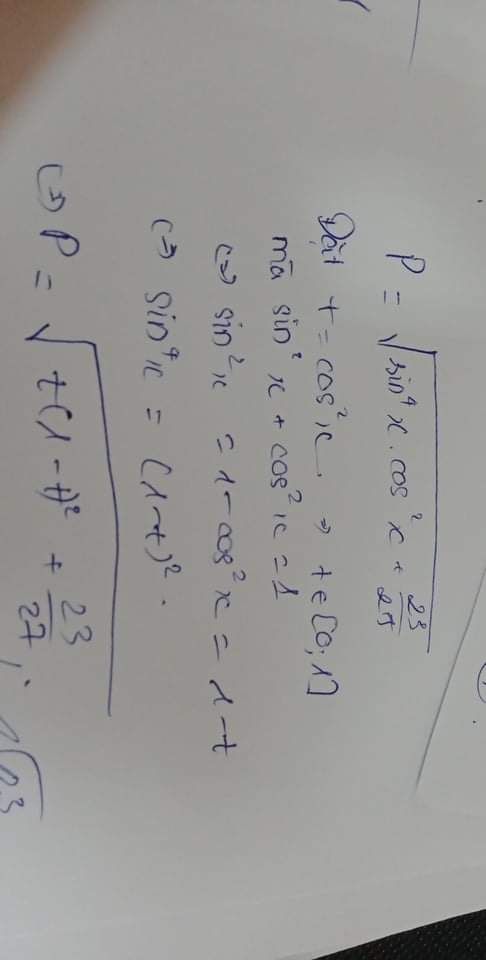 P = √(sin⁴x . cos²x + 23/27)
Đặt t = cos²x. ⇒ t ∈ [0;1]
mà sin²x + cos²x = 1
(⇒) sin²x = 1 - cos²x = 1 - t
(⇒) sin⁴x = (1-t)².
(⇒) P = √(t(1-t)² + 23/27)